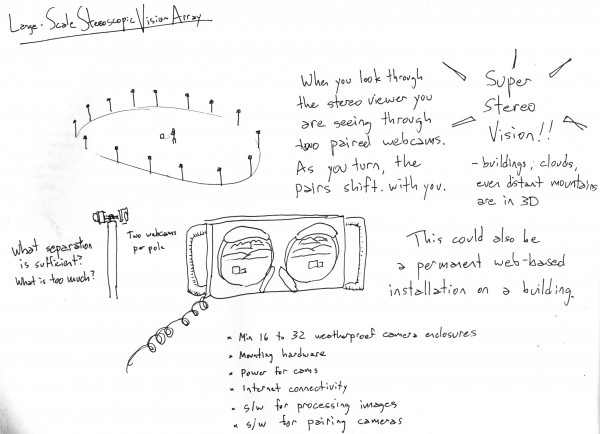 Large-Scale Stereoscopic Vision Array
When you look through
the stereo viewer you
are seeing through
two paired webcams.
As you turn, the
pairs shift with you.
Super
Stereo
Vision!!
- buildings, clouds,
even distant mountains
are in 3D
What separation
is sufficient?
What is too much?
Two webcams
per pole
This could also be
a permanent web-based
installation on a building.
* Min 16 to 32 weatherproof camera enclosures
* Mounting hardware
* Power for cams
* Internet connectivity
* s/w for processing images
* s/w for pairing cameras